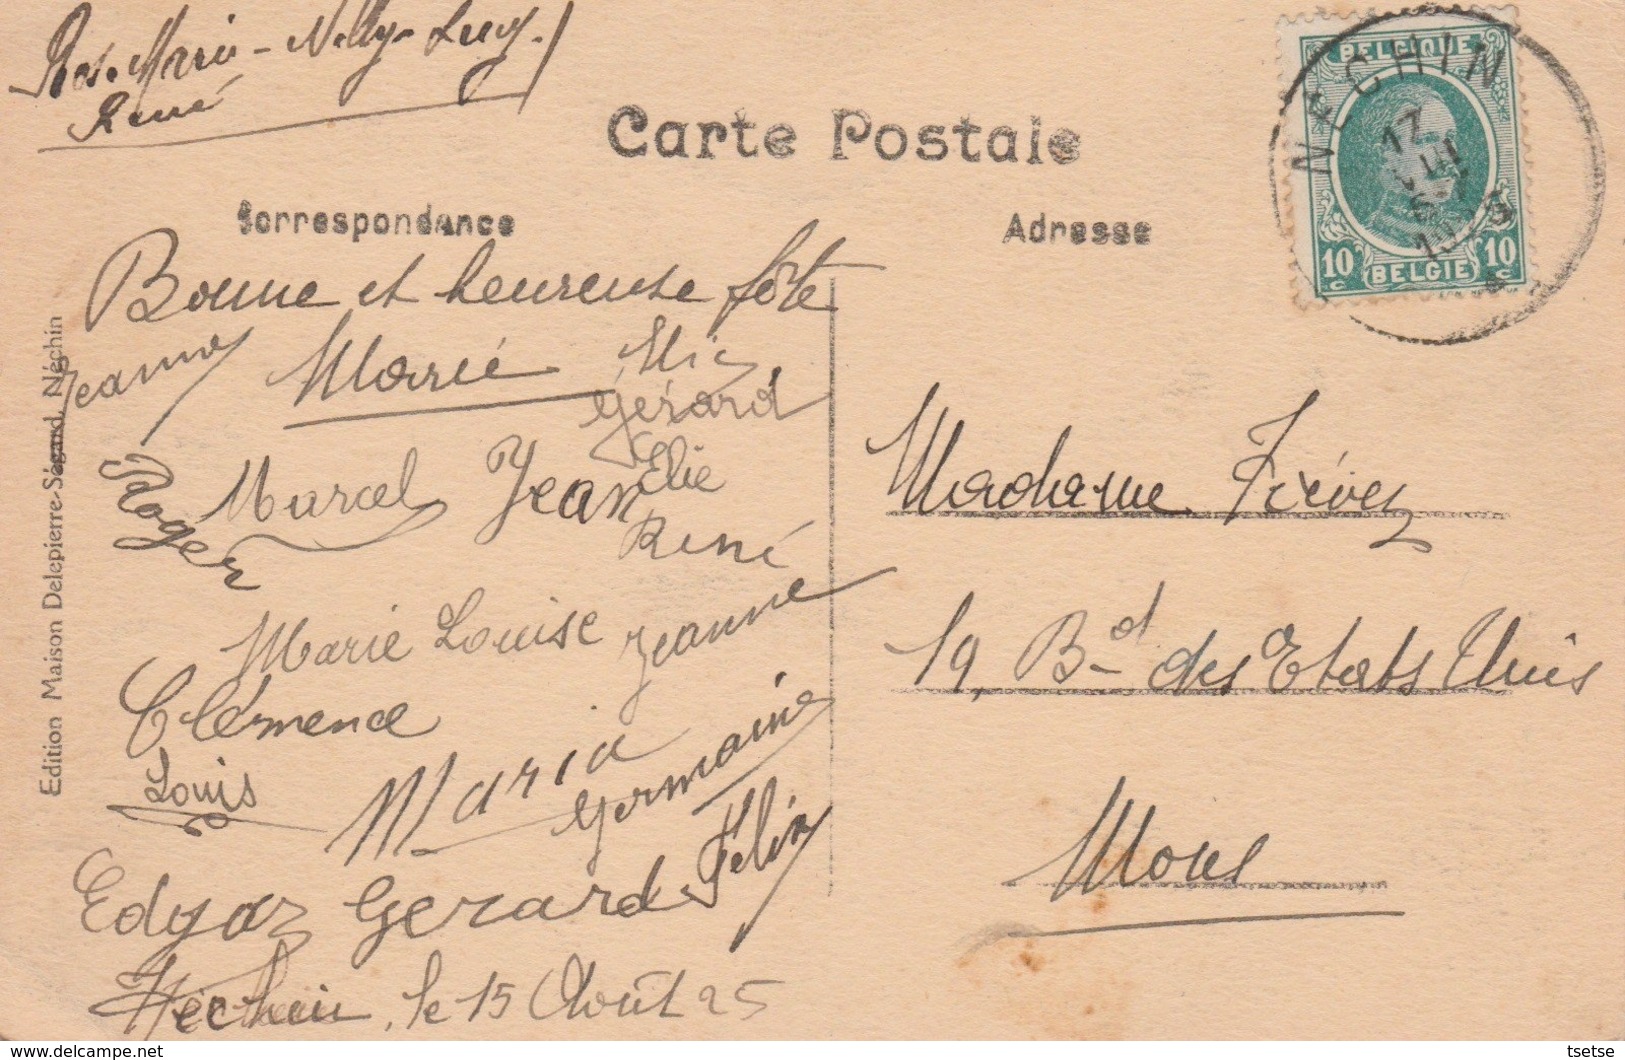 Rose-Marie - Nelly - Lucy.
René
Carte Postale
Correspondance
Adresse
NECHIN
17
BELGIQUE
10c BELGIE 10c
Bonne et heureuse fête
Marie
Jeanne
Gérard
Roger
Marcel
Jean
Elie
René
Marie Louise
Jeanne
Clémence
Louis
Maria
Germaine
Félix
Edgar Gerard
Néchin, le 15 Août 25
Madame
19, Bd des Etats Unis
Mons
Edition Maison Delepierre-Ségard, Néchin
tsetse